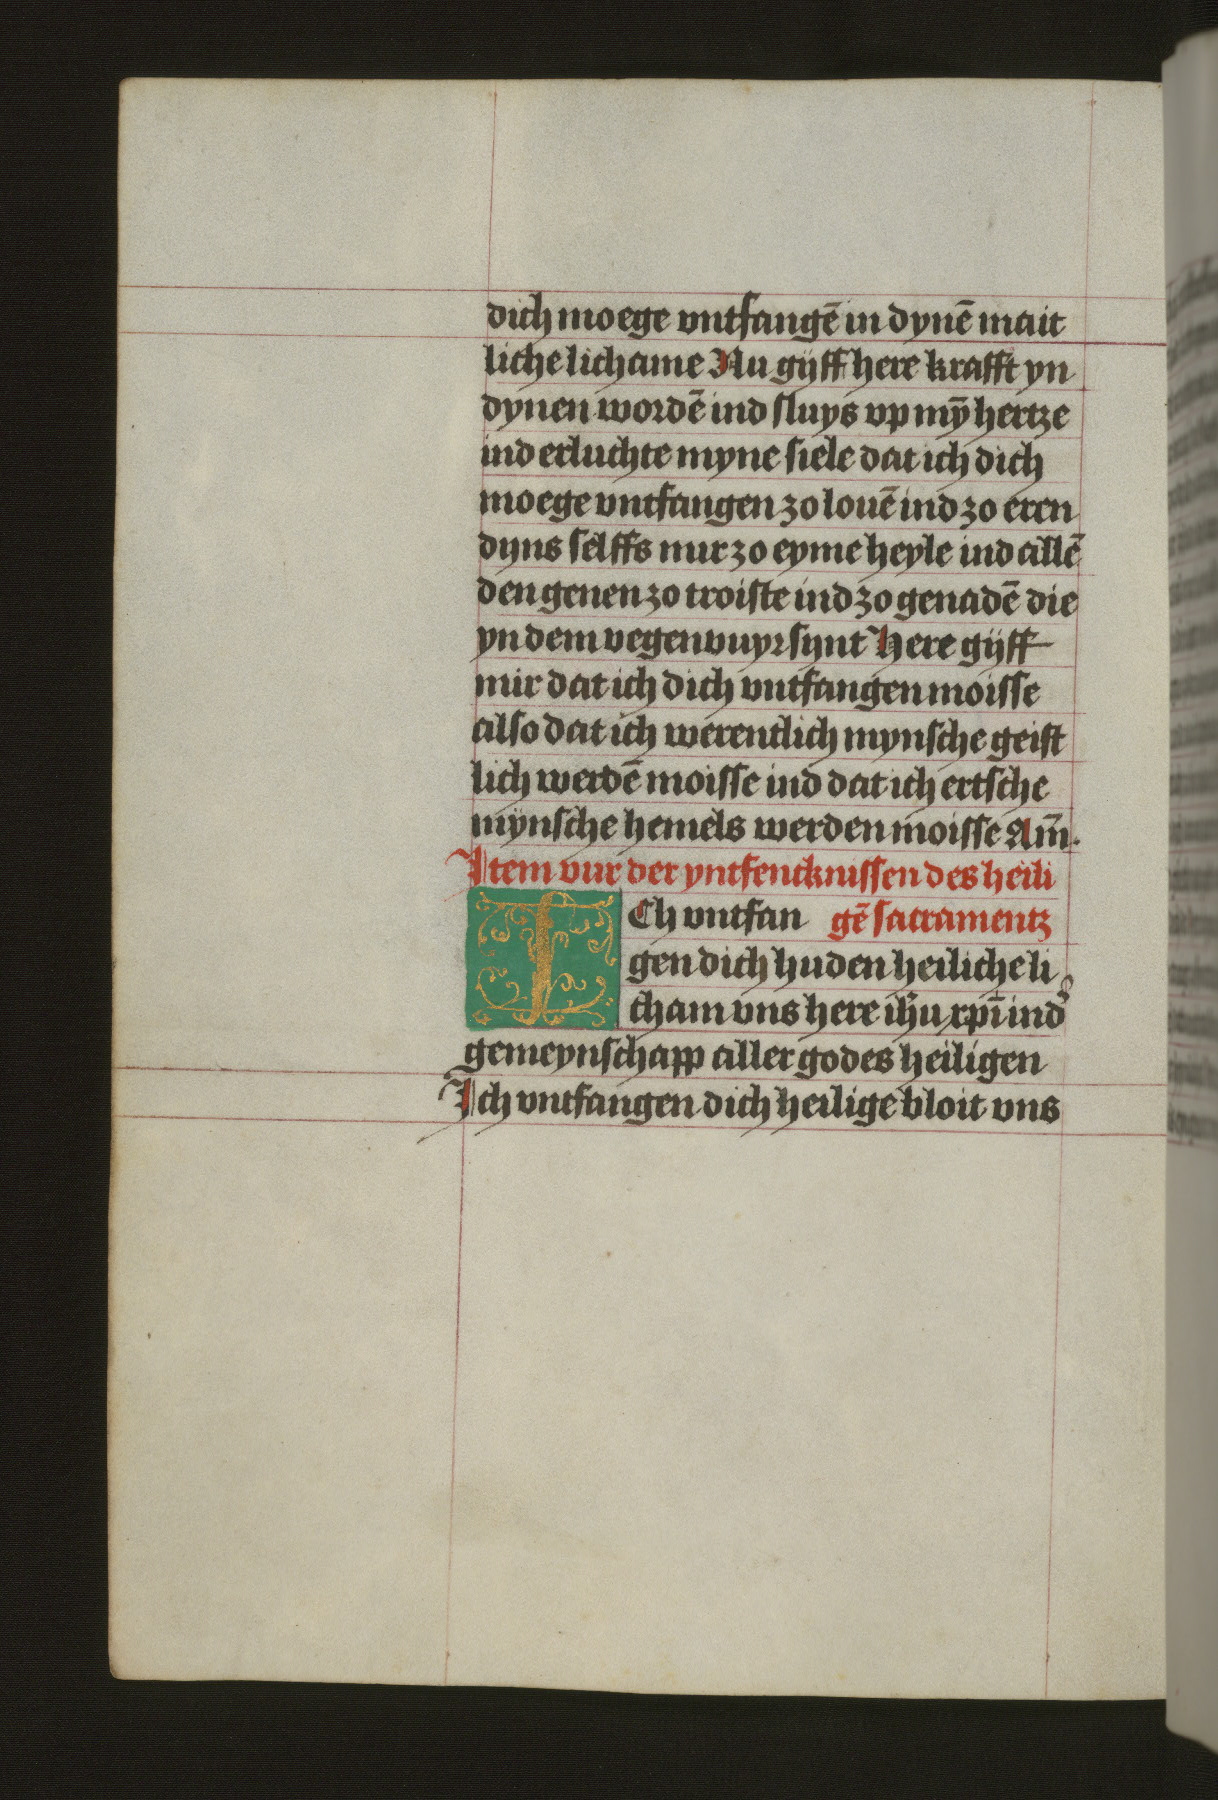 dich moege vntfangē in dynē mait
liche lichame Nu gyff here krafft yn
dynen wordē ind sluys vp mȳ hertze
ind erluchte myne siele dat ich dich
moege vntfangen zo louē ind zo eren
dyns selffs mir zo eyme heyle ind allē
den genen zo troiste ind zo genadē die
yn dem vegenvuyr synt Here gyff
mir dat ich dich vntfangen moisse
also dat ich werentlich mynsche geist
lich werdē moisse ind dat ich ertsche
mynsche hemels werden moisse Am̄.
Item vur der yntfencknissen des heili
Ich vntfan gē sacramentz
gen dich huden heiliche li
cham vns here ih̄u xp̄i ind
gemeynschapp aller godes heiligen
Ich vntfangen dich heilige bloit vns